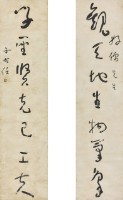 觀天地生物氣象
學聖賢克己工夫
于右任